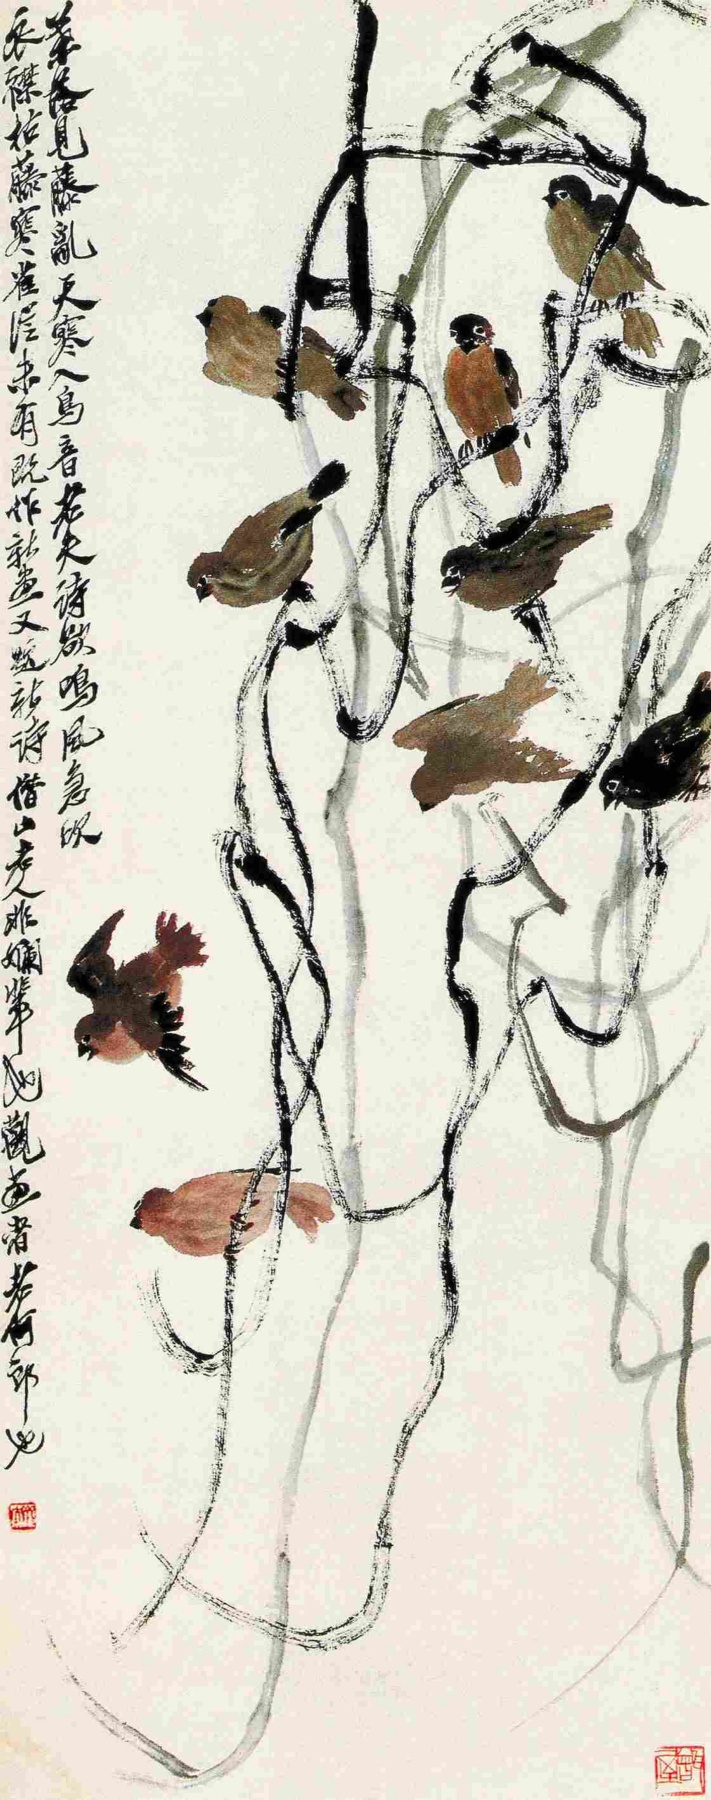 葉落見藤亂天寒入鳥音老夫詩欲鳴風急吹
衣襟枯藤寒雀從未有既作新畫又題新詩借山老人非嬾輩也觀畫者老何郎也